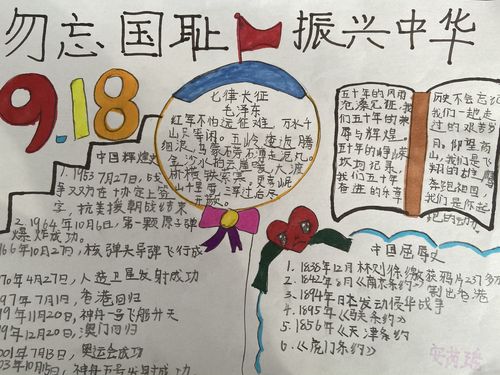 勿忘国耻 振兴中华
9.18
七律长征
毛泽东
红军不怕远征难，万水千
山只等闲。五岭逶迤腾
细浪，乌蒙磅礴走泥丸。
金沙水拍云崖暖，大渡
桥横铁索寒。更喜岷
山千里雪，三军过后尽
开颜。
五十年的风雨
沧桑见证，我
们五十年的荣
辱与辉煌，
五十年的峥嵘
坎坷记录，
我们五十年
奋进的乐章
历史不会忘记
我们一起走
过的艰苦岁
月。仰望高
山，我们是飞
翔的雄鹰
奔跑祖国，
我们是你起
中国辉煌史
1. 1953 7月27日，
争 双方在协定上签
字，抗美援朝战结束
2. 1964年10月6日，第一颗原子弹
爆炸成功。
966年10月27日，核弹头导弹飞行成
970年4月27日，人造卫星发射成功
97年7月1日 香港回归
99年11月20日，神舟一号飞船升天
99年12月20日，澳门回归
2001年7月13日，奥运会成功
03年10月15日，神舟五号
中国屈辱史
1. 1838年12月 林则徐缴获鸦片237多万
2. 1842年8月《南京条约》割出香港
3. 1894年日本发动侵华战争
4. 1895年《马关条约》
5. 1856年《天津条约
6. 《虎门条约》